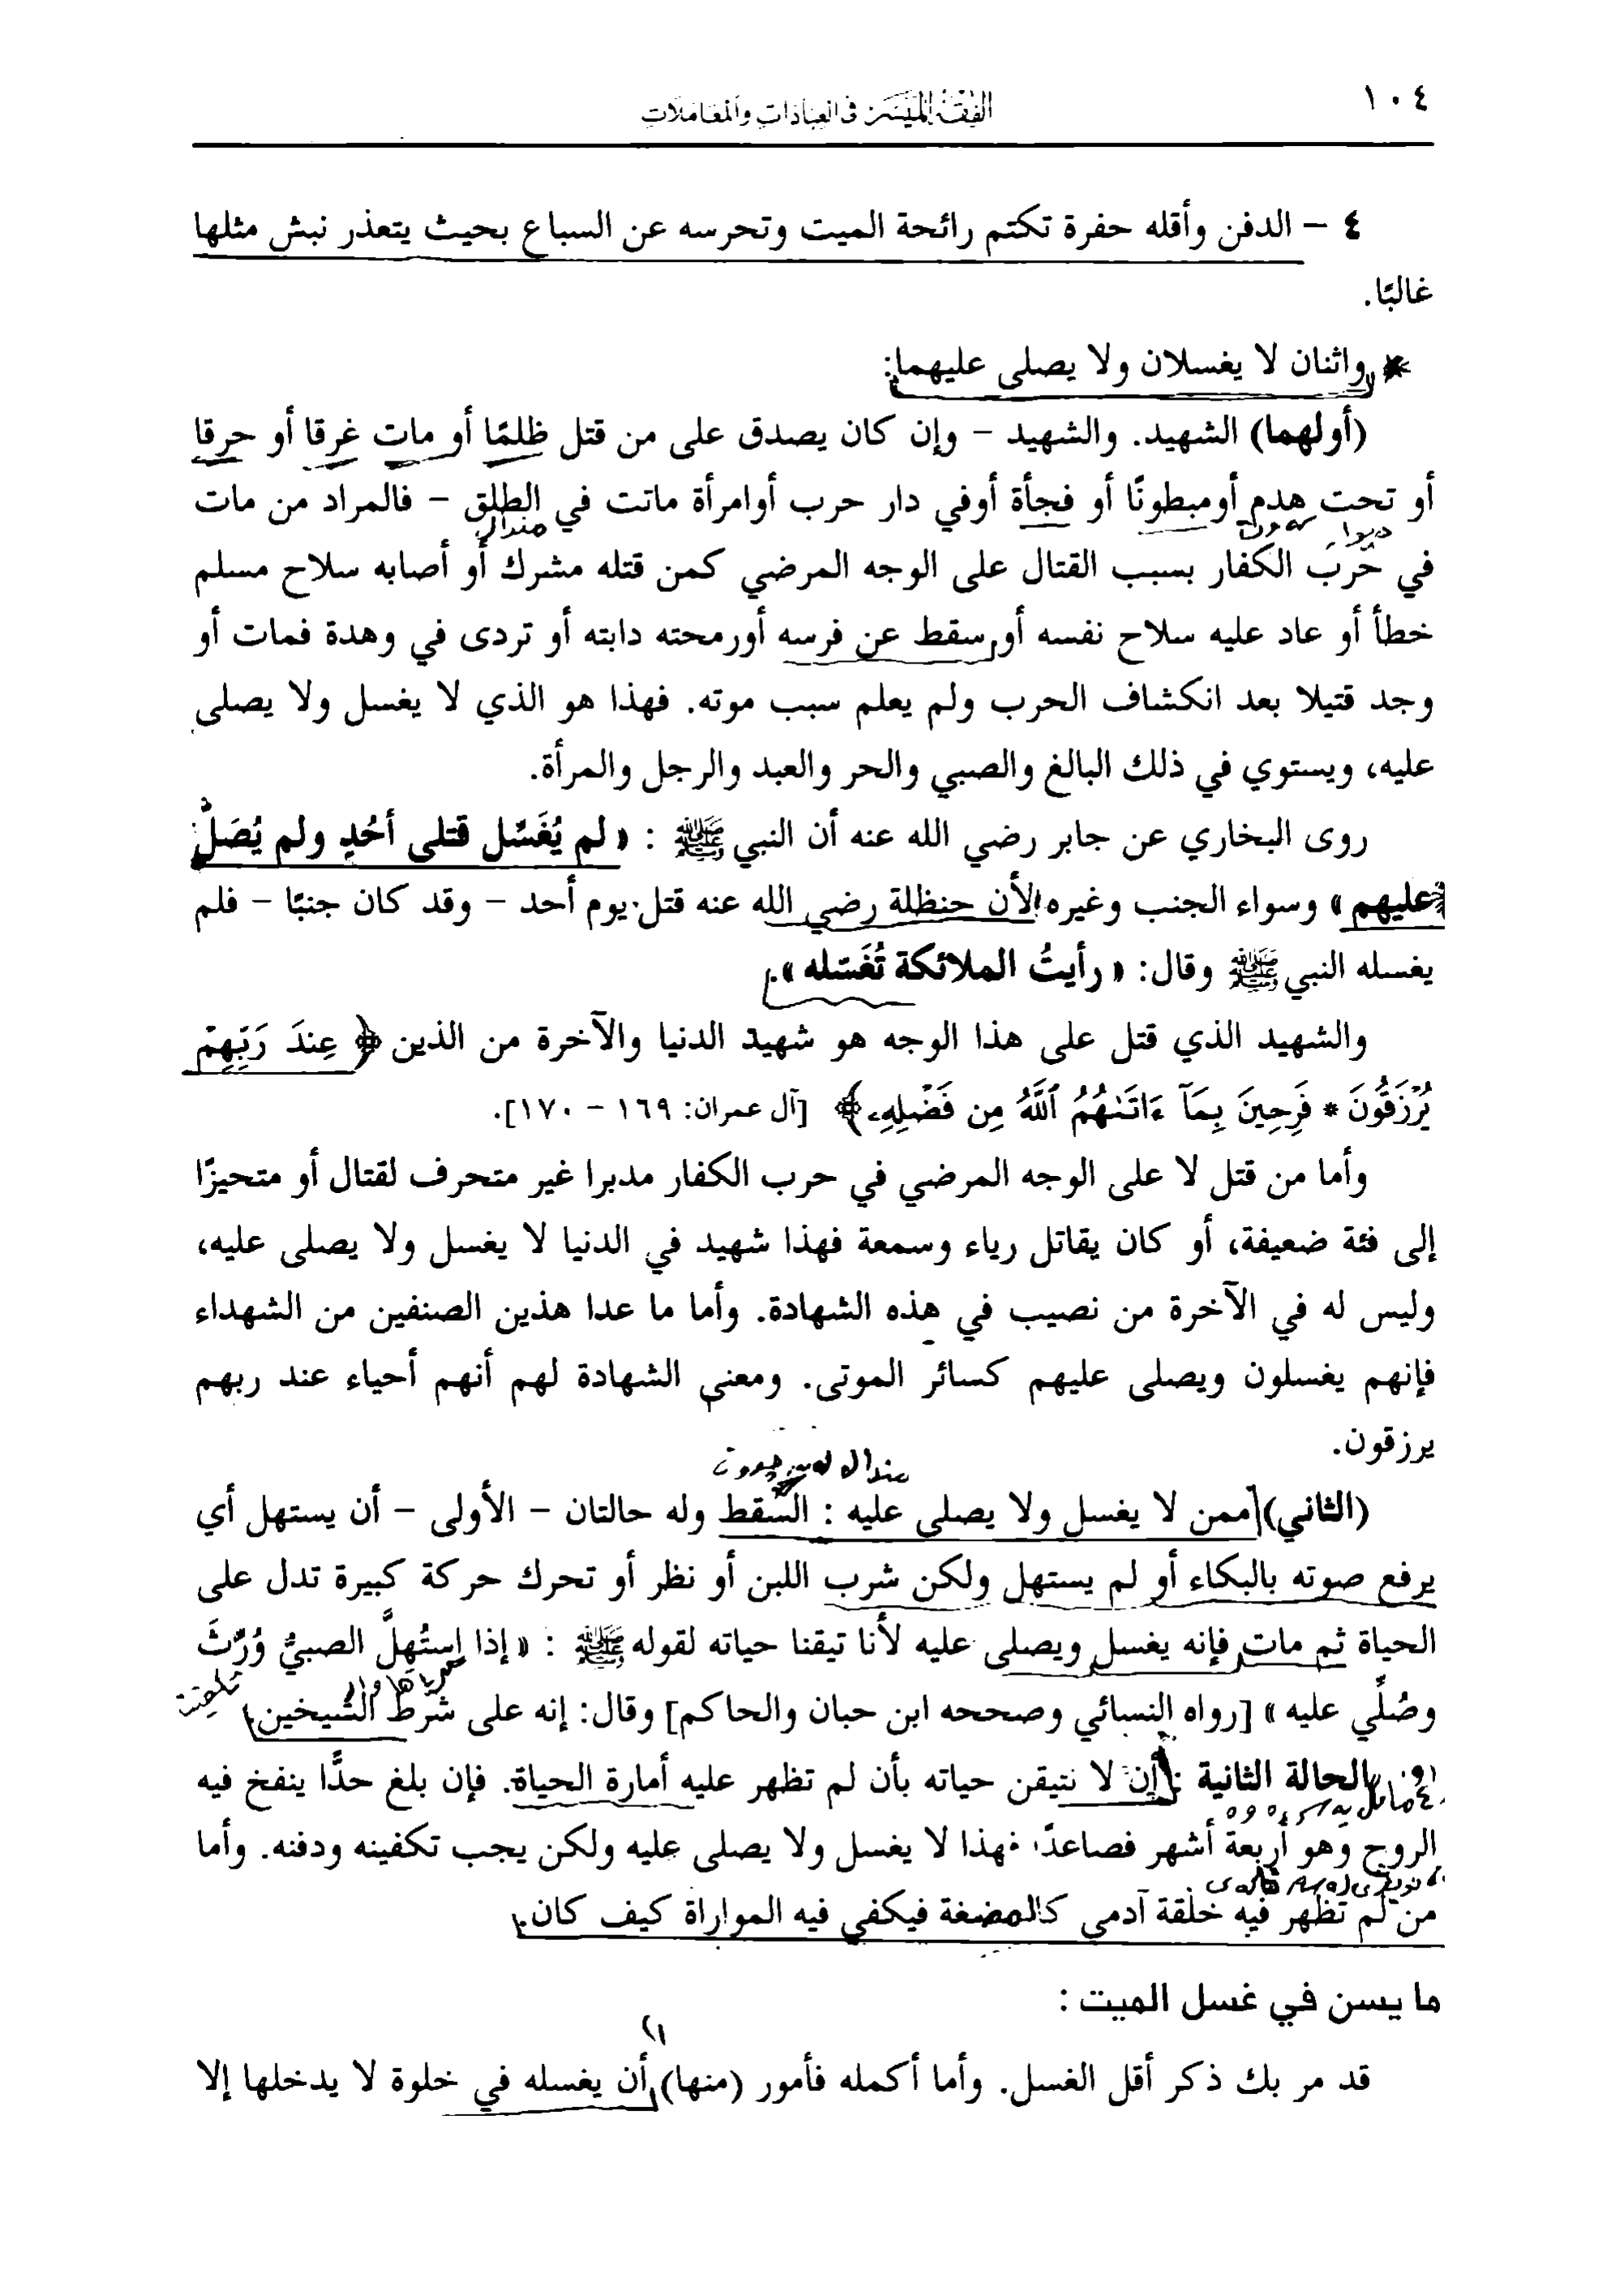 ١٠٤
الفقه الميسر في العبادات والمعاملات
٤ – الدفن وأقله حفرة تكتم رائحة الميت وتحرسه عن السباع بحيث يتعذر نبش مثلها
غالبًا.
* واثنان لا يغسلان ولا يصلى عليهما:
(أولهما) الشهيد. والشهيد – وإن كان يصدق على من قتل ظلمًا أو مات غرقا أو حرقا
أو تحت هدم أومبطونًا أو فجأة أوفي دار حرب أوامرأة ماتت في الطلق – فالمراد من مات
في حرب الكفار بسبب القتال على الوجه المرضي كمن قتله مشرك أو أصابه سلاح مسلم
خطأ أو عاد عليه سلاح نفسه أو سقط عن فرسه أورمحته دابته أو تردى في وهدة فمات أو
وجد قتيلا بعد انكشاف الحرب ولم يعلم سبب موته. فهذا هو الذي لا يغسل ولا يصلى
عليه، ويستوي في ذلك البالغ والصبي والحر والعبد والرجل والمرأة.
روى البخاري عن جابر رضي الله عنه أن النبي ﷺ : « لم يُغَسَّل قتلى أحُدٍ ولم يُصَلَّ
عليهم » وسواء الجنب وغيره لأن حنظلة رضي الله عنه قتل يوم أحد – وقد كان جنبًا – فلم
يغسله النبي ﷺ وقال: « رأيتُ الملائكة تُغَسّله ».
والشهيد الذي قتل على هذا الوجه هو شهيد الدنيا والآخرة من الذين ﴿ عِندَ رَبِّهِمْ
يُرْزَقُونَ * فَرِحِينَ بِمَآ ءَاتَىٰهُمُ ٱللَّهُ مِن فَضْلِهِۦ ﴾ [آل عمران: ١٦٩ – ١٧٠].
وأما من قتل لا على الوجه المرضي في حرب الكفار مدبرا غير متحرف لقتال أو متحيزًا
إلى فئة ضعيفة، أو كان يقاتل رياء وسمعة فهذا شهيد في الدنيا لا يغسل ولا يصلى عليه،
وليس له في الآخرة من نصيب في هذه الشهادة. وأما ما عدا هذين الصنفين من الشهداء
فإنهم يغسلون ويصلى عليهم كسائر الموتى. ومعنى الشهادة لهم أنهم أحياء عند ربهم
يرزقون.
(الثاني) ممن لا يغسل ولا يصلى عليه : السّقط وله حالتان – الأولى – أن يستهل أي
يرفع صوته بالبكاء أو لم يستهل ولكن شرب اللبن أو نظر أو تحرك حركة كبيرة تدل على
الحياة ثم مات فإنه يغسل ويصلى عليه لأنا تيقنا حياته لقوله ﷺ : « إذا استُهِلَّ الصبيُّ وُرِّثَ
وصُلِّي عليه » [رواه النسائي وصححه ابن حبان والحاكم] وقال: إنه على شرط الشيخين
الحالة الثانية : أن لا نتيقن حياته بأن لم تظهر عليه أمارة الحياة. فإن بلغ حدًّا ينفخ فيه
الروح وهو أربعة أشهر فصاعدًا فهذا لا يغسل ولا يصلى عليه ولكن يجب تكفينه ودفنه. وأما
من لم تظهر فيه خلقة آدمي كالمضغة فيكفي فيه المواراة كيف كان.
ما يسن في غسل الميت :
قد مر بك ذكر أقل الغسل. وأما أكمله فأمور (منها) أن يغسله في خلوة لا يدخلها إلا